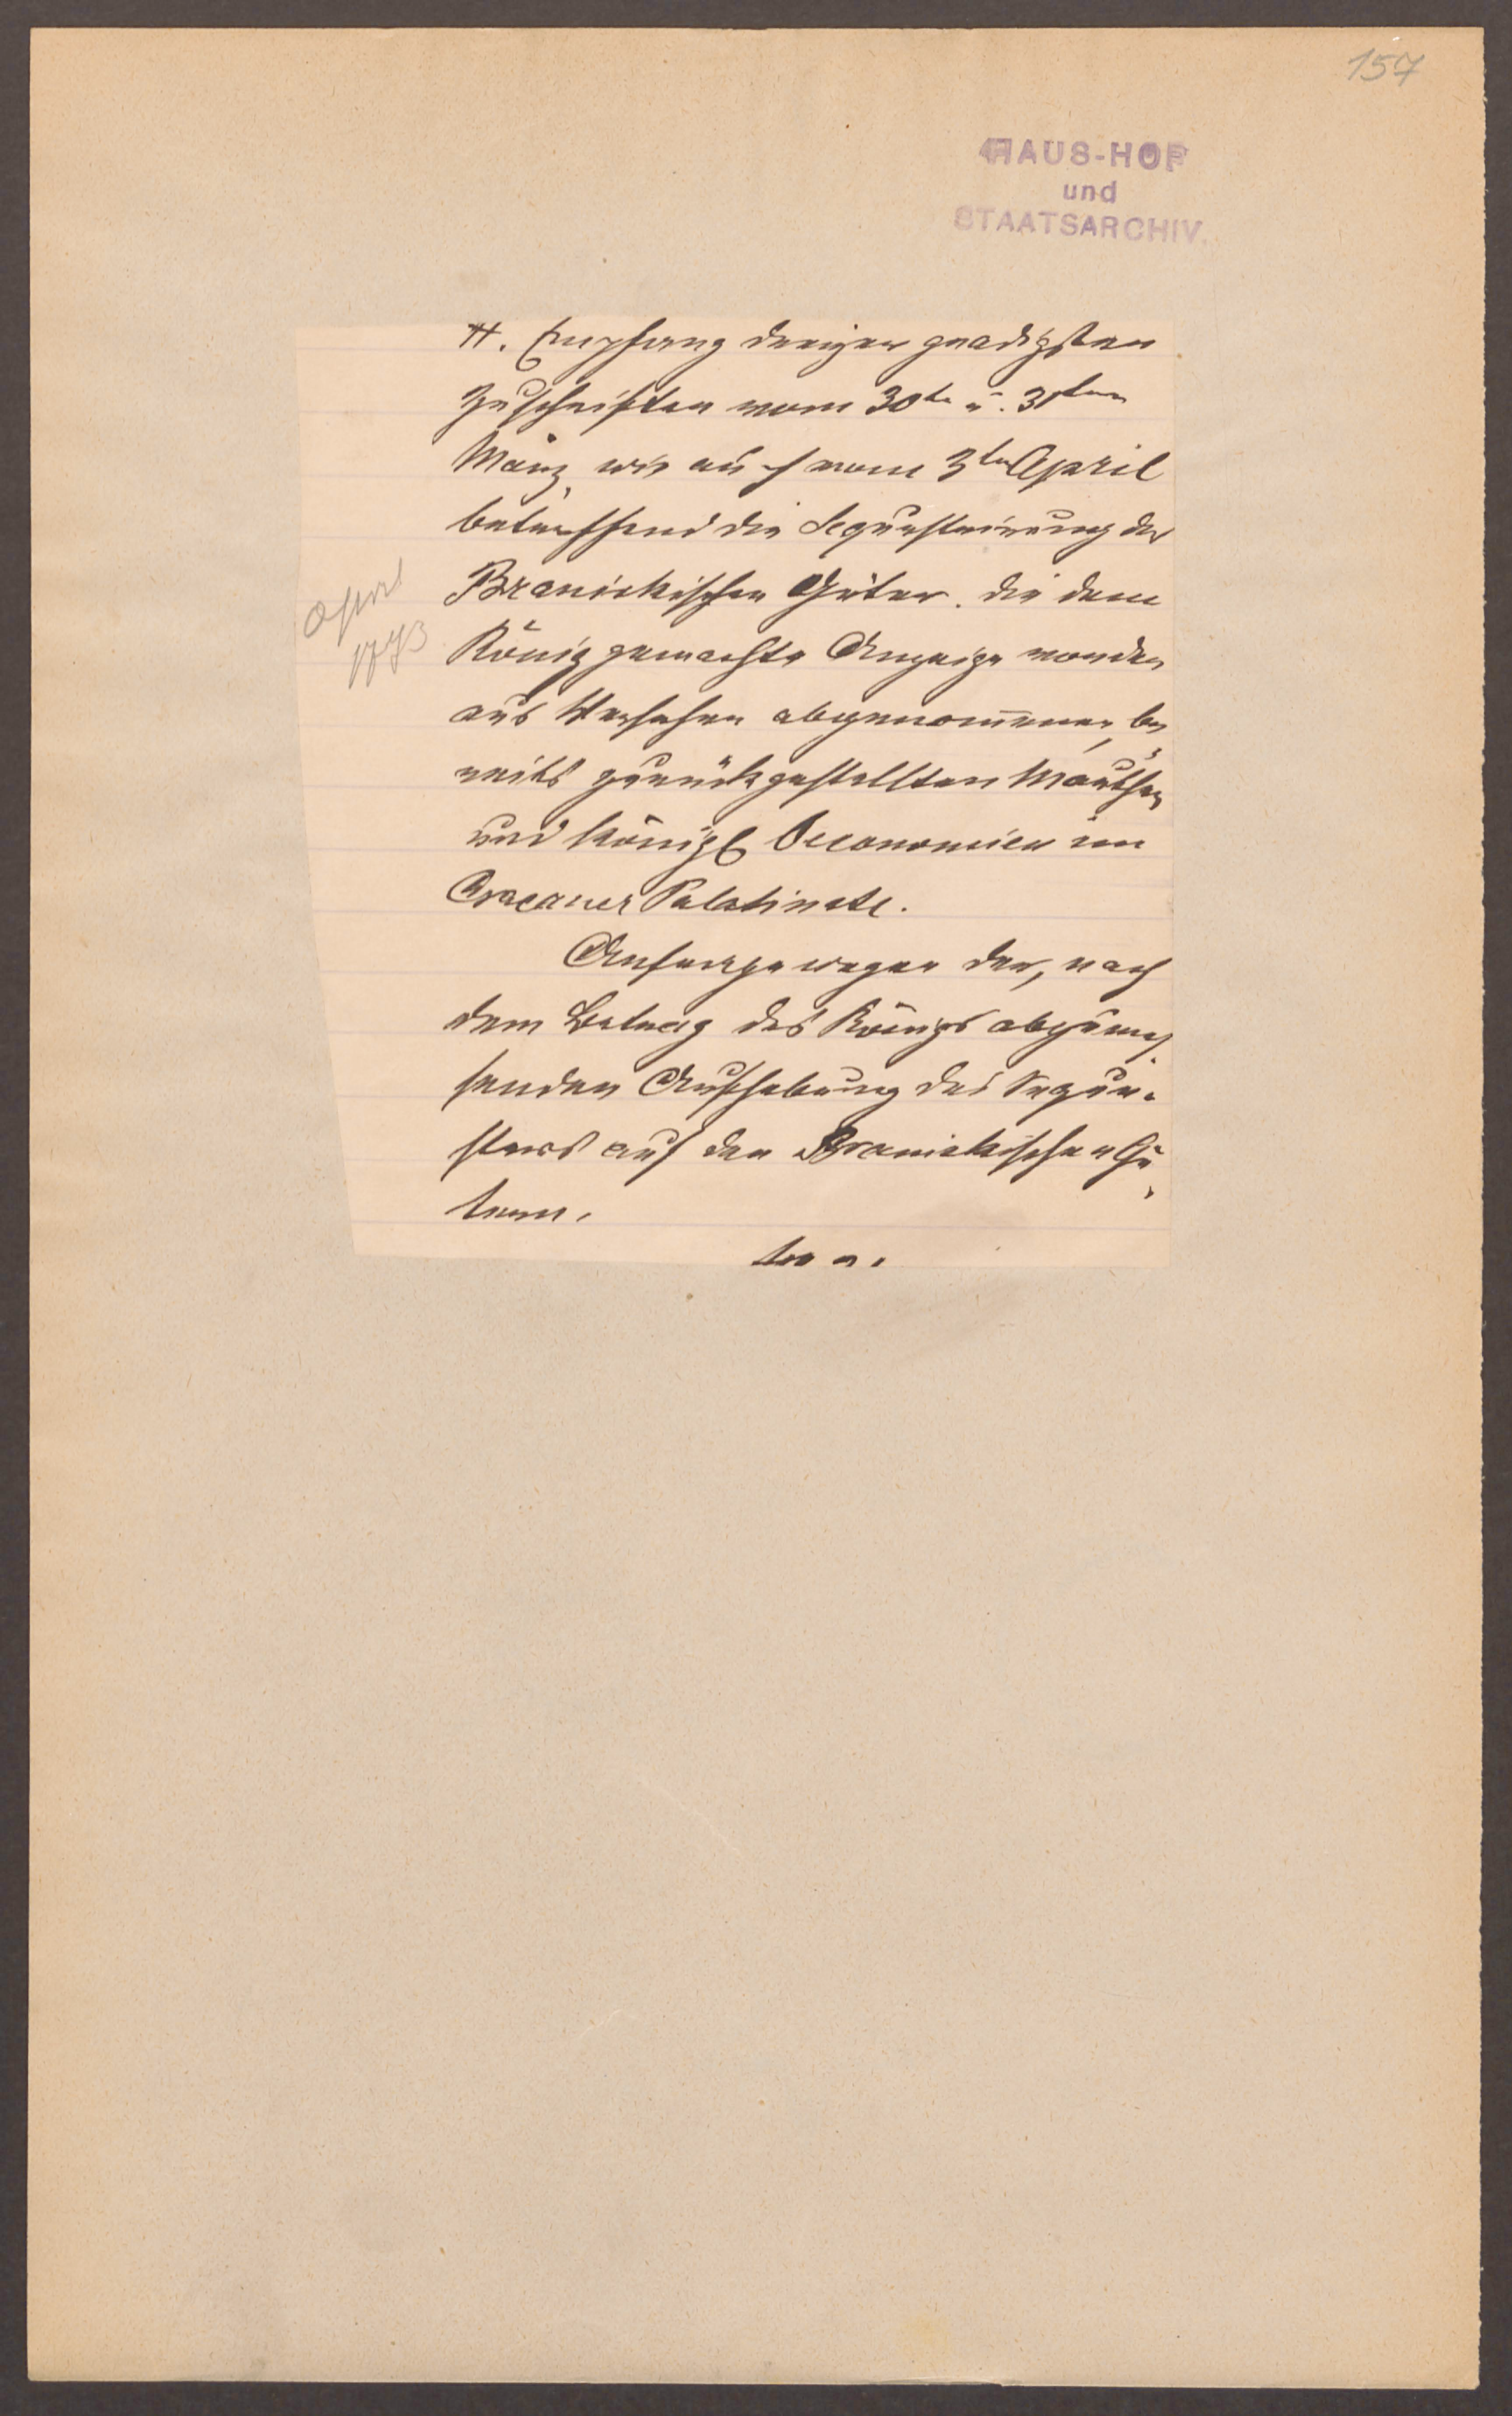 157
HAUS-HOF
und
STAATSARCHIV.
H. Empfang dreÿer gnadigsten
Zuschriften vom 30te u. 31ten
März, wie auch vom 3ten April
betreffend die Sequestrirung der
Branickischen Güter. die dem
König gemachte Anzeige von den
aus Versehen abgenommenen, be
reits zurückgestellten Mauthen
und königl Oeconomien im
Cracauer Palatinate.
Anfrage wegen der, nach
dem Betrag des Königs
senden Aufhebung des Seque-
sters auf den Branickischen Gü
tern.
April